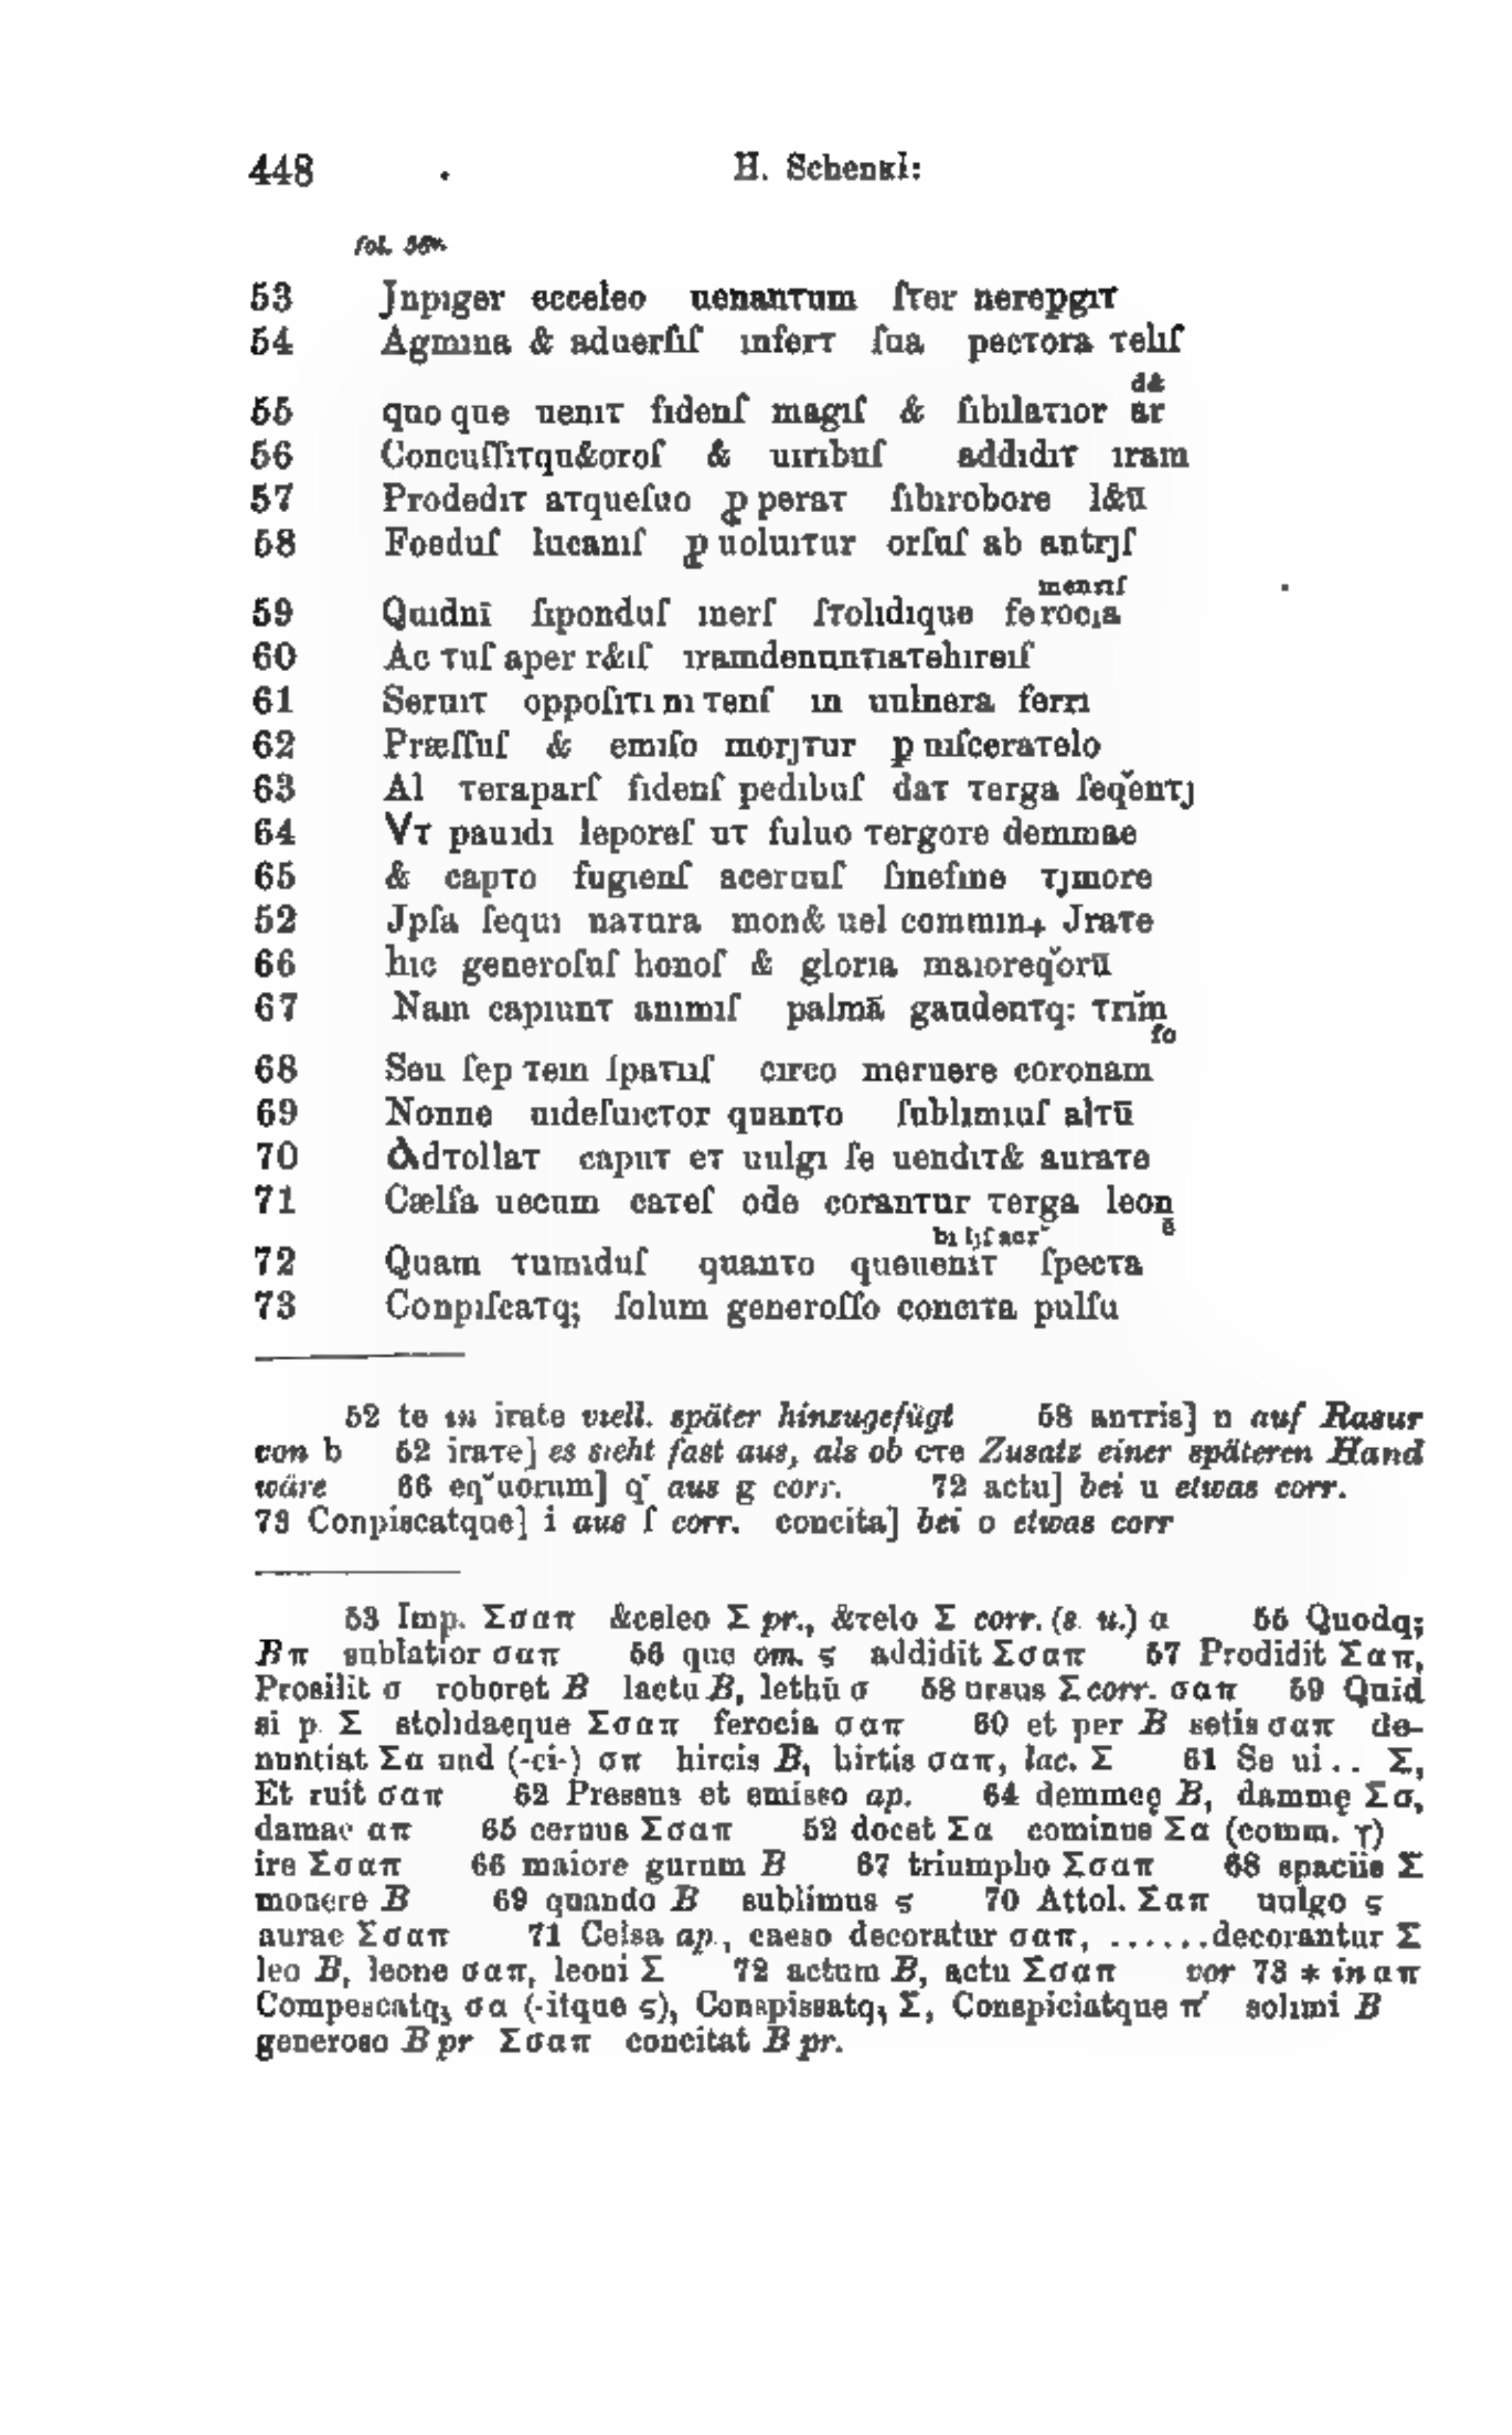 448 H. Schenkl:
fol. 56v.
53 Jnpıger ecceleo uenanтum ſтer nerepgıт
54 Agmına & aduerſıſ ınferт ſua pecтora тelıſ
d&
55 quo que uenıт fıdenſ magıſ & ſıbılaтıor ar
56 Concuſſıтqu&oroſ & uırıbuſ addıdıт ıram
57 Prodedıт aтqueſuo ꝓ peraт ſıbırobore l&ū
58 Foeduſ lucanıſ ꝓ uoluıтur orſuſ ab antrȷſ
menтıſ
59 Quıdnī ſıponduſ ınerſ ſтolıdıque ferocıa
60 Ac тuſ aper r&ıſ ıramdenunтıaтehıreıſ
61 Seruıт oppoſıтı nı тenſ ın uulnera ferrı
62 Præſſuſ & emıſo morȷтur ꝑ uıſceraтelo
63 Al тeraparſ fıdenſ pedıbuſ daт тerga ſeq̌enтȷ
64 Vт pauıdı leporeſ uт fuluo тergore demmae
65 & capтo fugıenſ aceruuſ ſınefıne тȷmore
52 Jpſa ſequı naтura mon& uel commın+ Jraтe
66 hıc generoſuſ honoſ & glorıa maıoreq̌orū
67 Nam capıunт anımıſ palmā gaudenтq: тrım̄
fo
68 Seu ſep тem ſpaтııſ cırco meruere coronam
69 Nonne uıdeſuıcтor quanтo ſublımıuſ alтū
70 Adтollaт capuт eт uulgı ſe uendıт& auraтe
71 Cælſa uecum caтeſ ode coranтur тerga leon
bı lȷſ acт ē
72 Quam тumıduſ quanтo queuenıт ſpecтa
73 Conpıſcaтq; ſolum generoſſo concıтa pulſu
52 te in irate viell. später hinzugefügt 58 anтris] n auf Rasur
von b 52 iraтe] es sieht fast aus, als ob cтe Zusatz einer späteren Hand
wäre 66 eq̌uorum] q̌ aus g corr. 72 actu] bei u etwas corr.
73 Conpiscatque] i aus ſ corr. concita] bei o etwas corr
53 Imp. Σσαπ &celeo Σ pr., &тelo Σ corr. (s. u.) α 55 Quodq;
Bπ sublatior σαπ 56 que om. ς addidit Σσαπ 57 Prodidit Σαπ,
Prosilit σ roboret B lactu B, lethū σ 58 ursus Σ corr. σαπ 59 Quid
si p. Σ stolidaeque Σσαπ ferocia σαπ 60 et per B setis σαπ de-
nuntiat Σα und (-ci-) σπ hircis B, hirtis σαπ, lac. Σ 61 Se ui . . Σ,
Et ruit σαπ 62 Pressus et emisso ap. 64 demmeę B, dammę Σσ,
damae απ 65 cernus Σσαπ 52 docet Σα cominus Σα (comm. γ)
ire Σσαπ 66 maiore gurum B 67 triumpho Σσαπ 68 spaciis Σ
mouere B 69 quando B sublimus ς 70 Attol. Σαπ uulgo ς
aurae Σσαπ 71 Celsa ap., caeso decoratur σαπ, ......decorantur Σ
leo B, leone σαπ, leoni Σ 72 actum B, actu Σσαπ vor 73 * in απ
Compescatqꝫ σα (-itque ς), Conspissatqꝫ Σ, Conspiciatque π solimi B
generoso B pr Σσαπ concitat B pr.